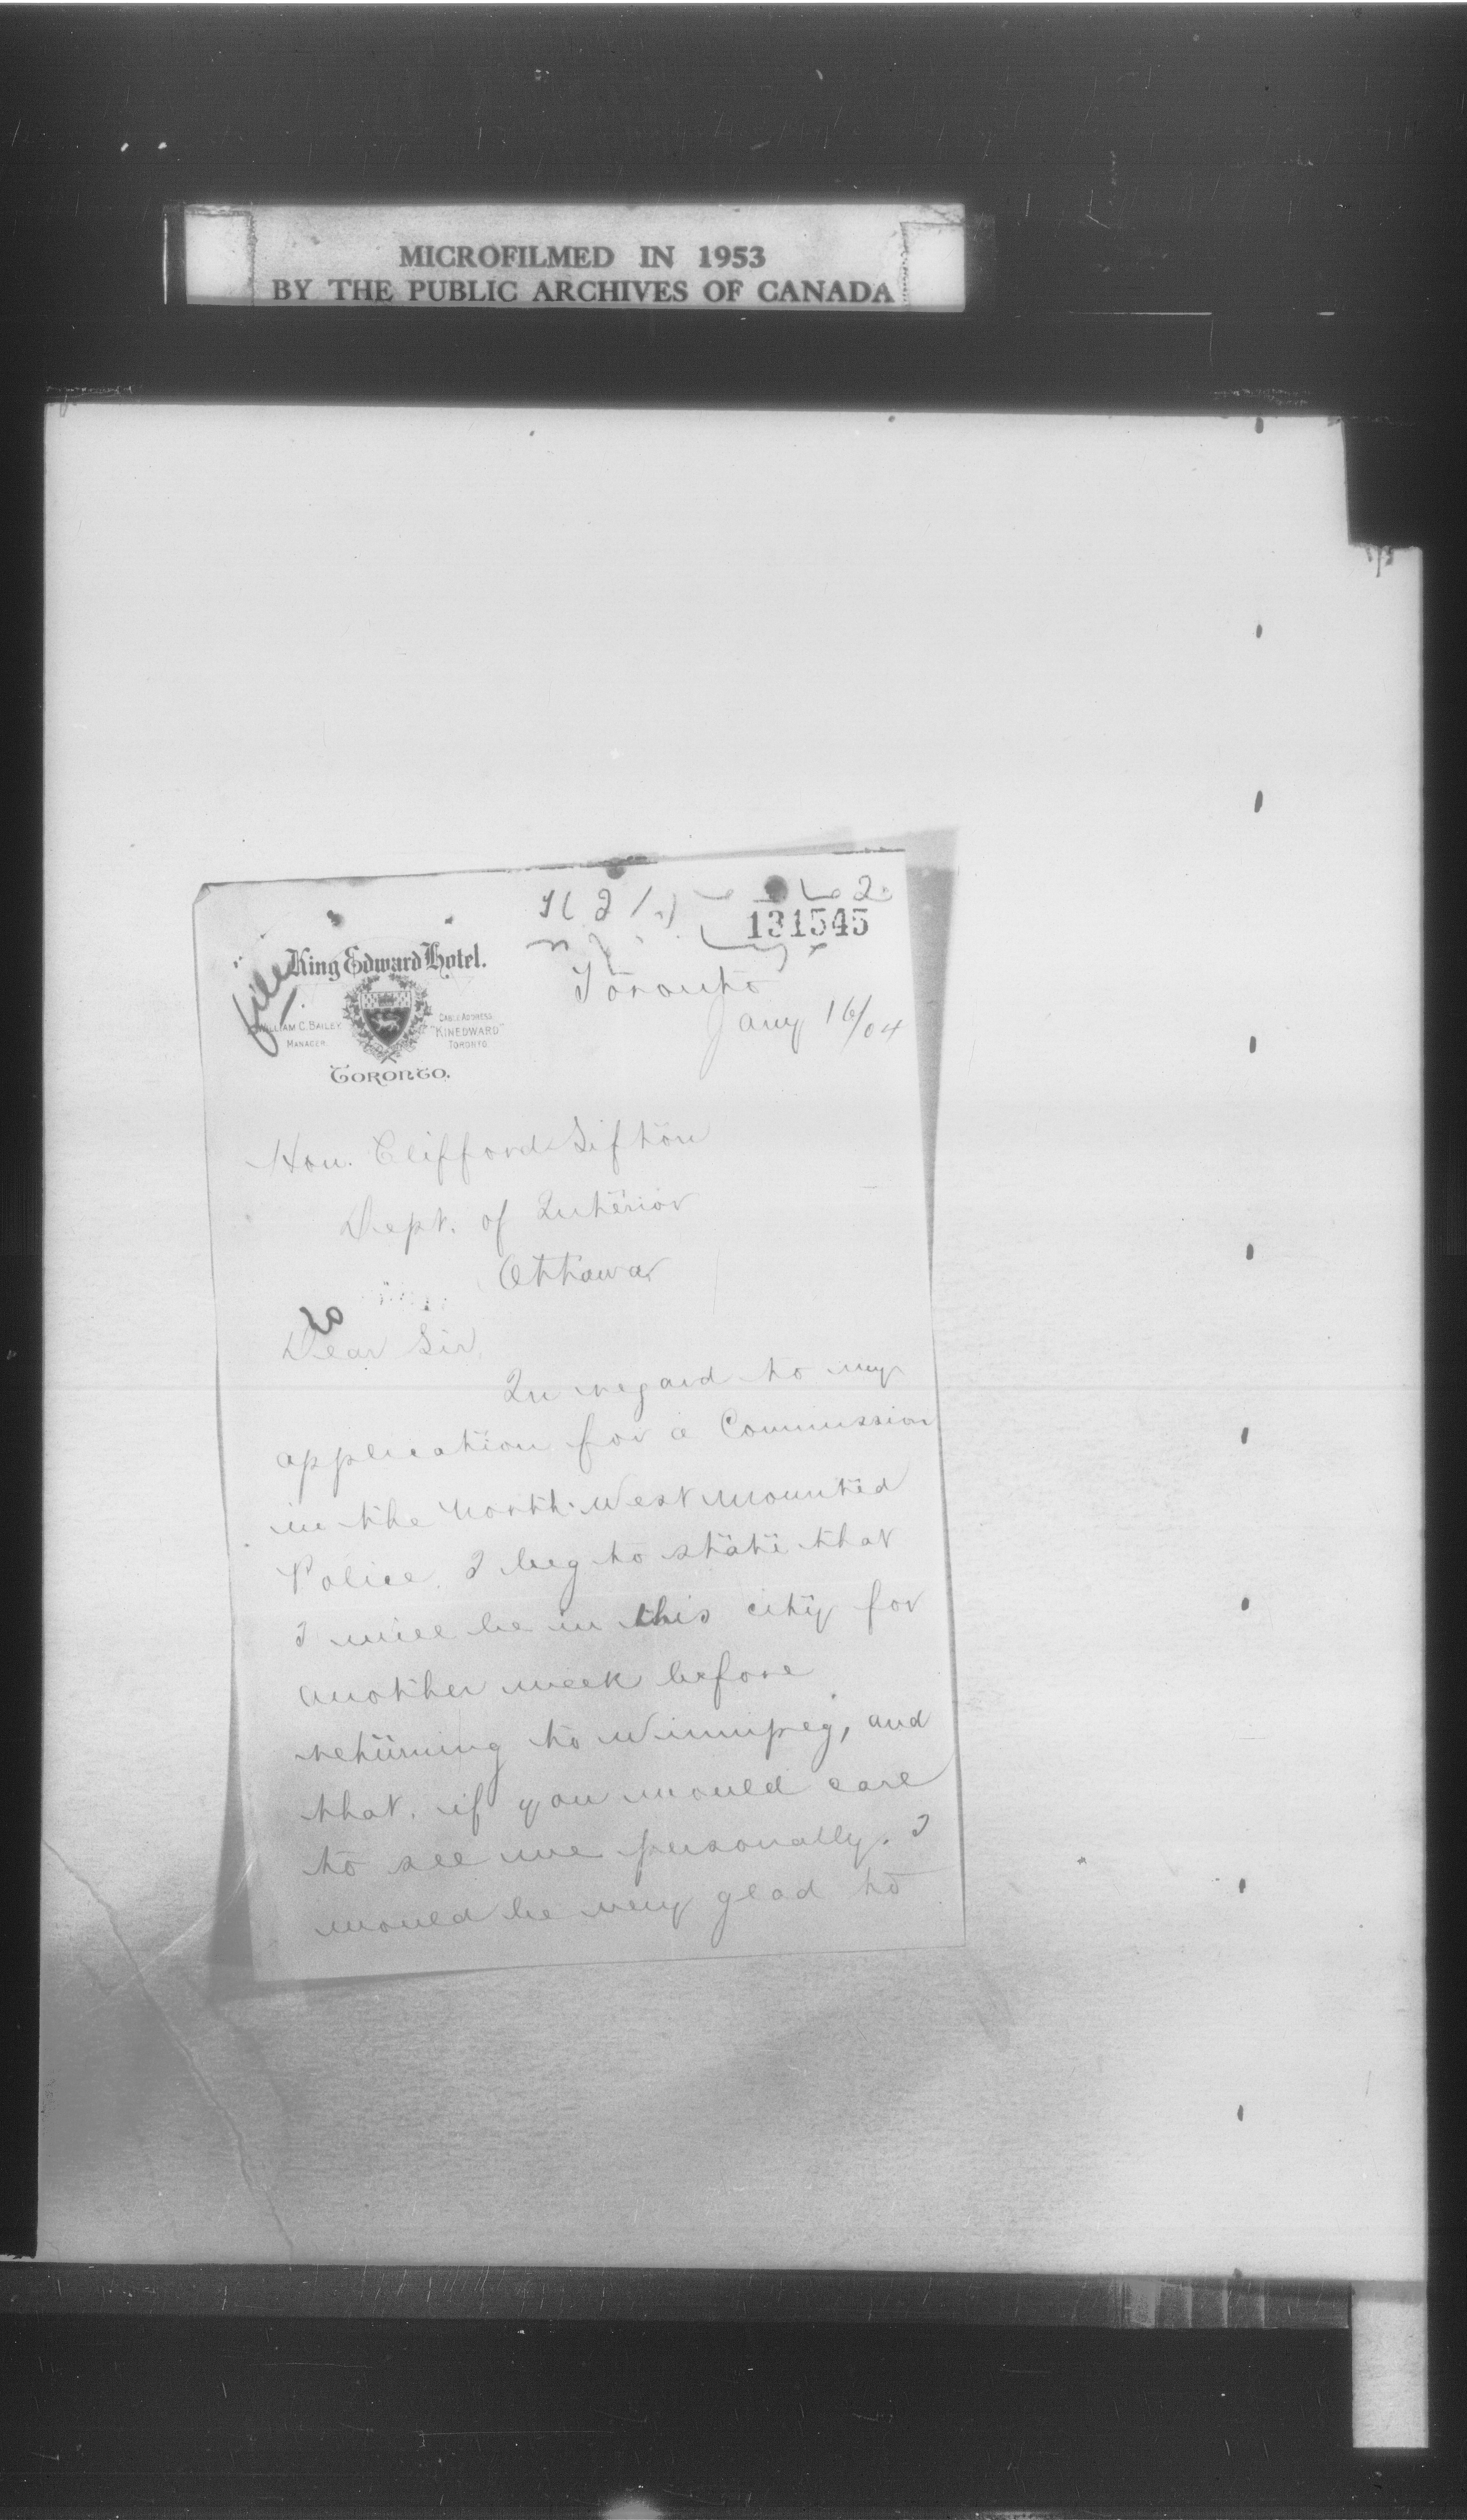 MICROFILMED IN 1953
BY THE PUBLIC ARCHIVES OF CANADA
131545
file
King Edward Hotel.
WILLIAM C. BAILEY.
MANAGER.
CABLE ADDRESS
"KINEDWARD"
TORONTO
TORONTO.
Toronto
Jany 16/04
Hon. Clifford Sifton
Dept. of Interior
Ottawa
Dear Sir,
In regard to my
application for a Commission
in the North-West Mounted
Police. I beg to state that
I will be in this city for
another week before
returning to Winnipeg, and
that, if you would care
to see me personally. I
would be very glad to